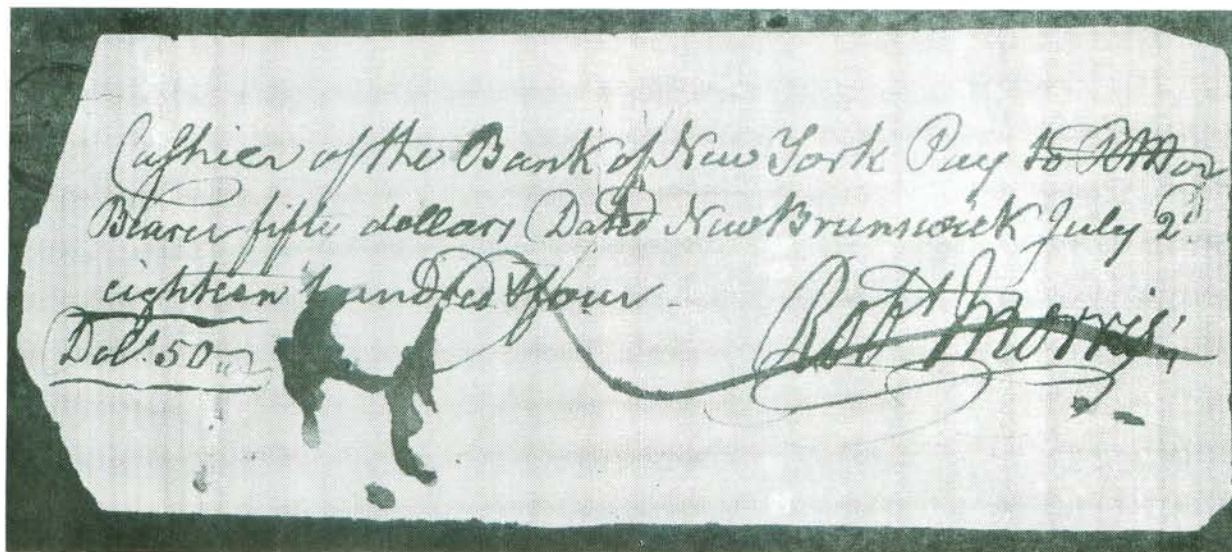 Cashier of the Bank of New York Pay to RM or
Bearer fifty dollars Dated New Brunswick July 2d
eighteen hundred & four
Robt Morris
Dols. 50